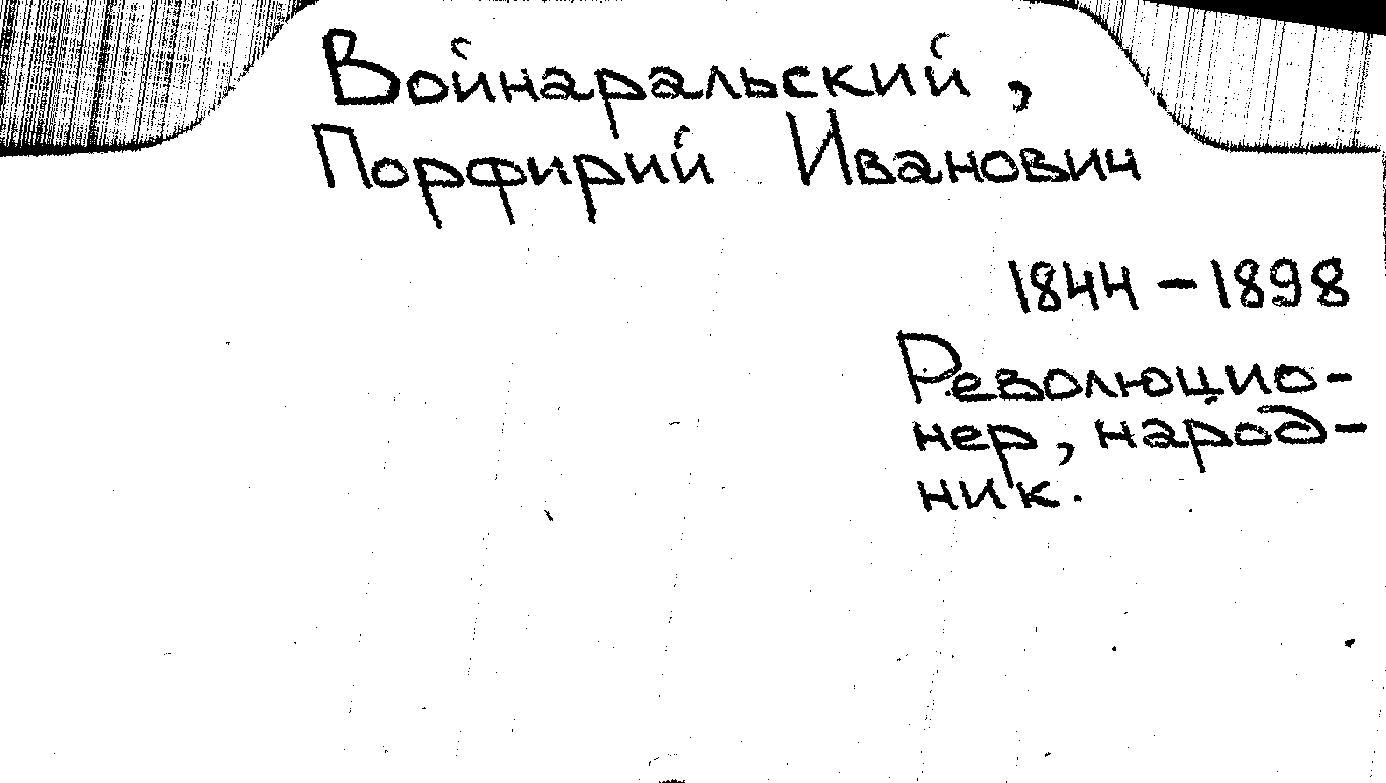 Войнаральский,
Порфирий Иванович
1844 - 1898
Революцио-
нер, народ-
ник.